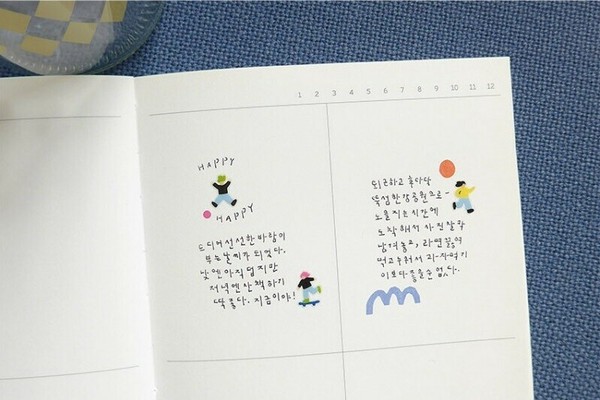 1 2 3 4 5 6 7 8 9 10 11 12
HAPPY
HAPPY
드디어 선선한 바람이
부는 날씨가 되었다.
낮엔 아직 덥지만
저녁엔 산책하기
딱 좋다. 지금이야!
퇴근하고 후다닥
뚝섬한강공원으로-
노을지는 시간에
도착해서 사진 잘 각
남겨놓고, 라면 끓여
먹고 누워서 리-자-먹기
이보다 좋을 순 없다.